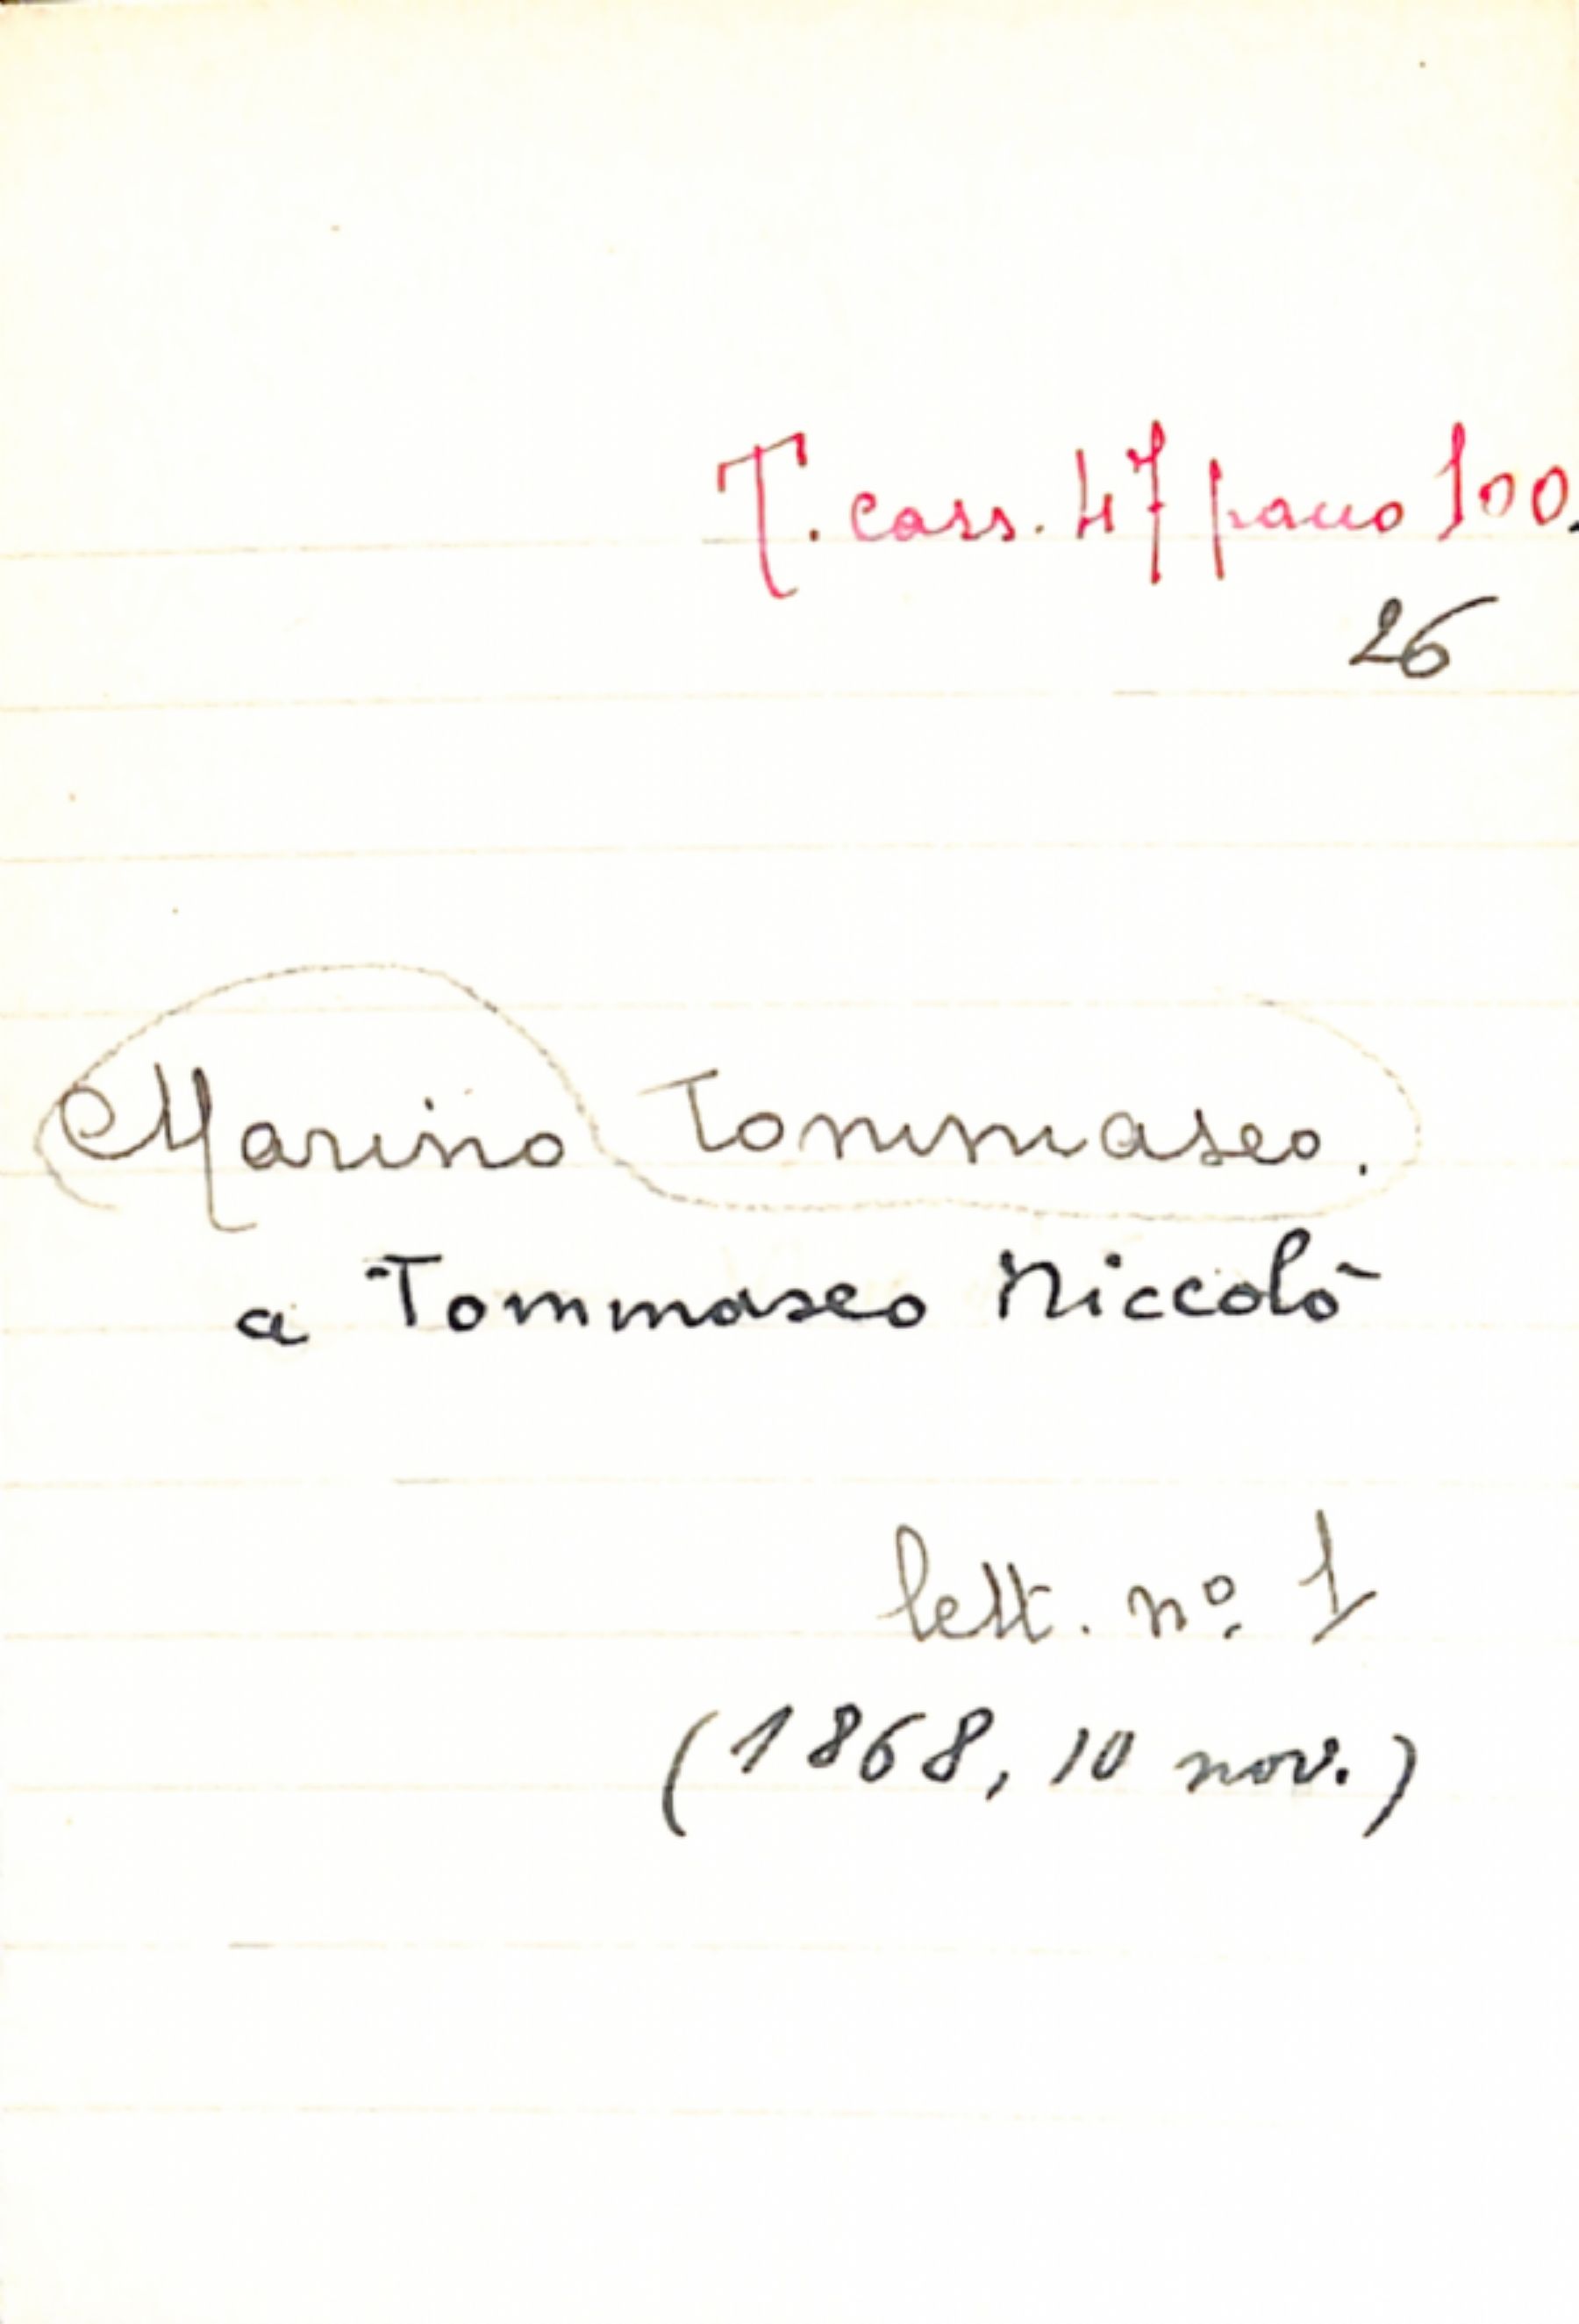 T. cass. 47 pacco 100.
26
Marino Tommaseo.
a Tommaseo Niccolò
lett. nº. 1
(1868, 10 nov.)